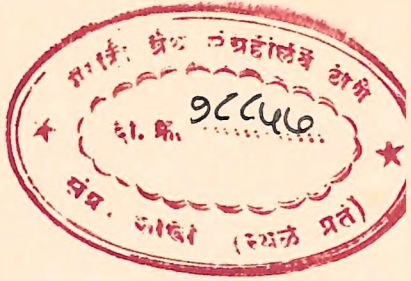 मराठी ग्रंथ संग्रहालय ठाणे
दा. क्र. १८८५७
(स्थळ प्रत)